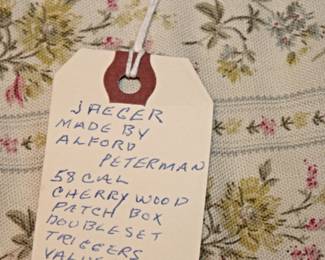 JAEGER
MADE BY
ALFORD
PETERMAN
58 CAL
CHERRY WOOD
PATCH BOX
DOUBLESET
TRIGGERS
VALUE